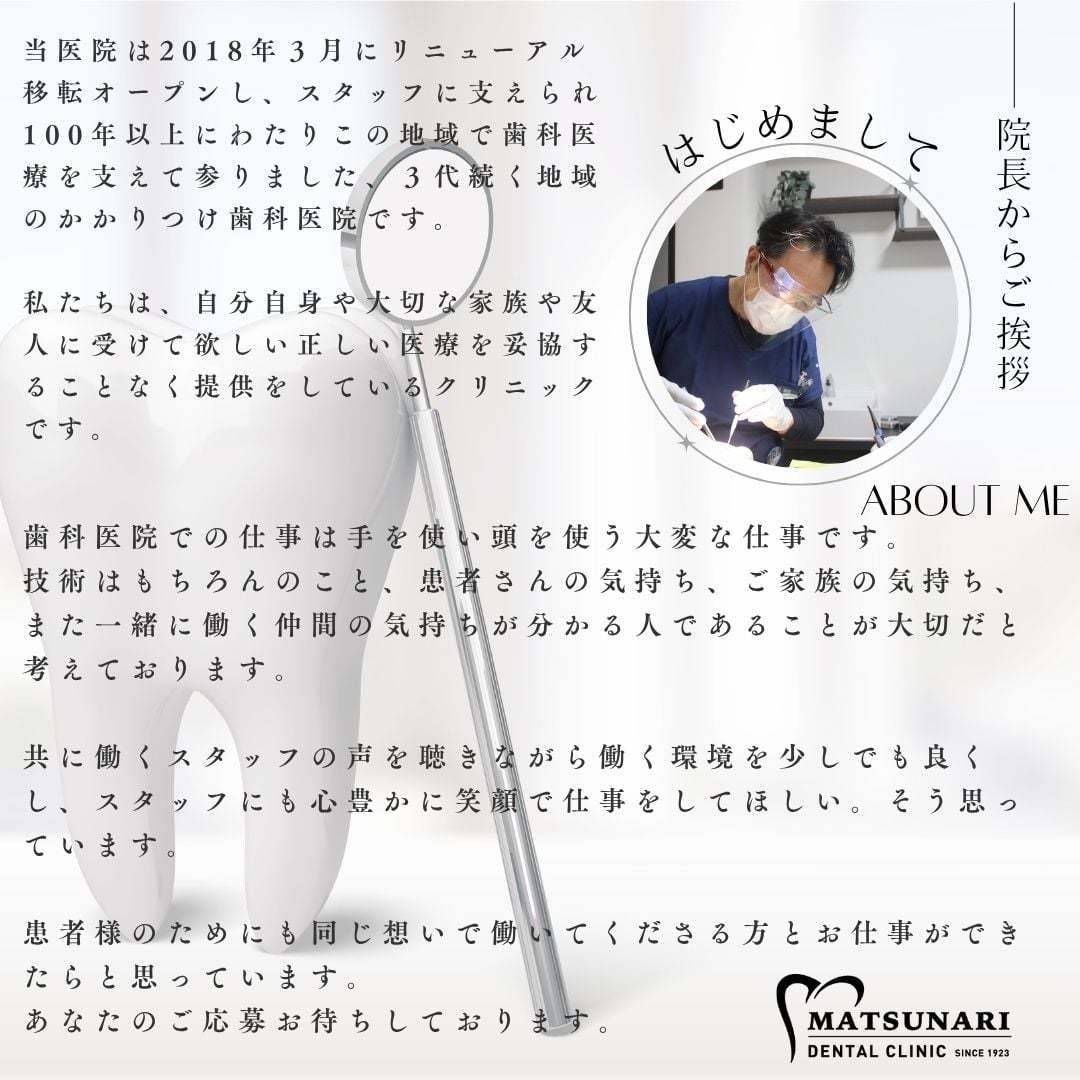 院長からご挨拶
はじめまして
ABOUT ME
当医院は2018年３月にリニューアル
移転オープンし、スタッフに支えられ
100年以上にわたりこの地域で歯科医
療を支えて参りました、３代続く地域
のかかりつけ歯科医院です。
私たちは、自分自身や大切な家族や友
人に受けて欲しい正しい医療を妥協す
ることなく提供をしているクリニック
です。
歯科医院での仕事は手を使い頭を使う大変な仕事です。
技術はもちろんのこと、患者さんの気持ち、ご家族の気持ち、
また一緒に働く仲間の気持ちが分かる人であることが大切だと
考えております。
共に働くスタッフの声を聴きながら働く環境を少しでも良く
し、スタッフにも心豊かに笑顔で仕事をしてほしい。そう思っ
ています。
患者様のためにも同じ想いで働いてくださる方とお仕事ができ
たらと思っています。
あなたのご応募お待ちしております。
MATSUNARI
DENTAL CLINIC SINCE 1923